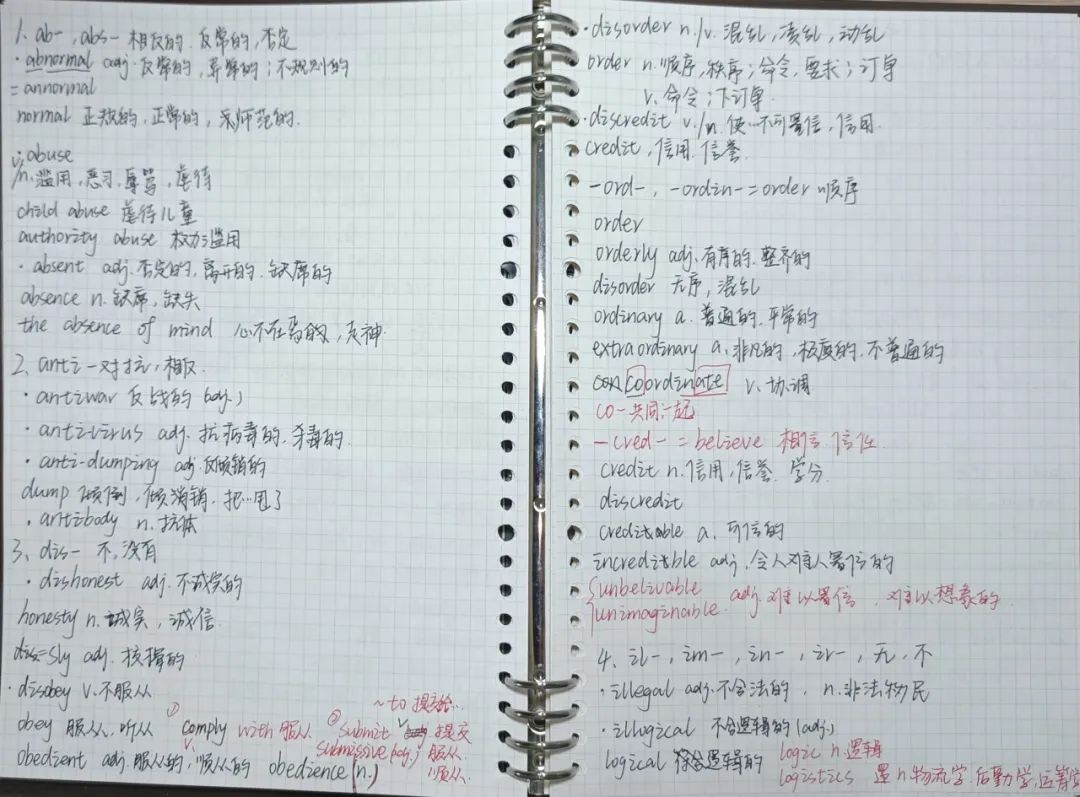 1. ab-, abs- 相反的.反常的,否定
·abnormal adj.反常的,异常的;不规则的
=annormal
normal 正规的,正常的,师范的.
·abuse
v/n.滥用,恶习,辱骂,虐待
child abuse 虐待儿童
authority abuse 权力滥用
·absent adj.否定的,离开的.缺席的
absence n.缺席,缺失
the absence of mind 心不在焉的,走神
2、anti-对抗,相反.
·antiwar 反战的(adj.)
·anti-virus adj.抗病毒的.杀毒的.
·anti-dumping adj.反倾销的
dump 倾倒,倾销.把…甩了
·antibody n.抗体
3、dis- 不,没有
·dishonest adj.不诚实的
honesty n.诚实,诚信.
sly adj.狡猾的
·disobey v.不服从
~to 提交给..
obey 服从.听从 ①comply with服从 ②submit v 提交
submissive(adj.) 服从.
顺从.
obedient adj.服从的,顺从的 obedience(n.)
·disorder n./v.混乱,凌乱,动乱
order n.顺序,秩序;命令,要求;订单
v.命令;下订单
·discredit v./n.使…不可置信,信用.
credit,信用.信誉.
-ord-, -ordin-=order 顺序
order
orderly adj.有序的.整齐的
disorder 无序,混乱
ordinary a.普通的.平常的
extraordinary a.非凡的,极度的.不普通的
coordinate v.协调
co-共同,一起
-cred-=believe 相信 信任
credit n.信用,信誉.学分.
discredit
creditable a.可信的
increditble adj.令人难人置信的
unbelivable
unimaginable. adj.难以置信.难以想象的.
4、il-, im-, in-, ir-,无,不
·illegal adj.不合法的, n.非法物民
·illogical 不合逻辑的(adj.)
logical 符合逻辑的 logic n.逻辑
logistics n.物流学.后勤学,运筹学